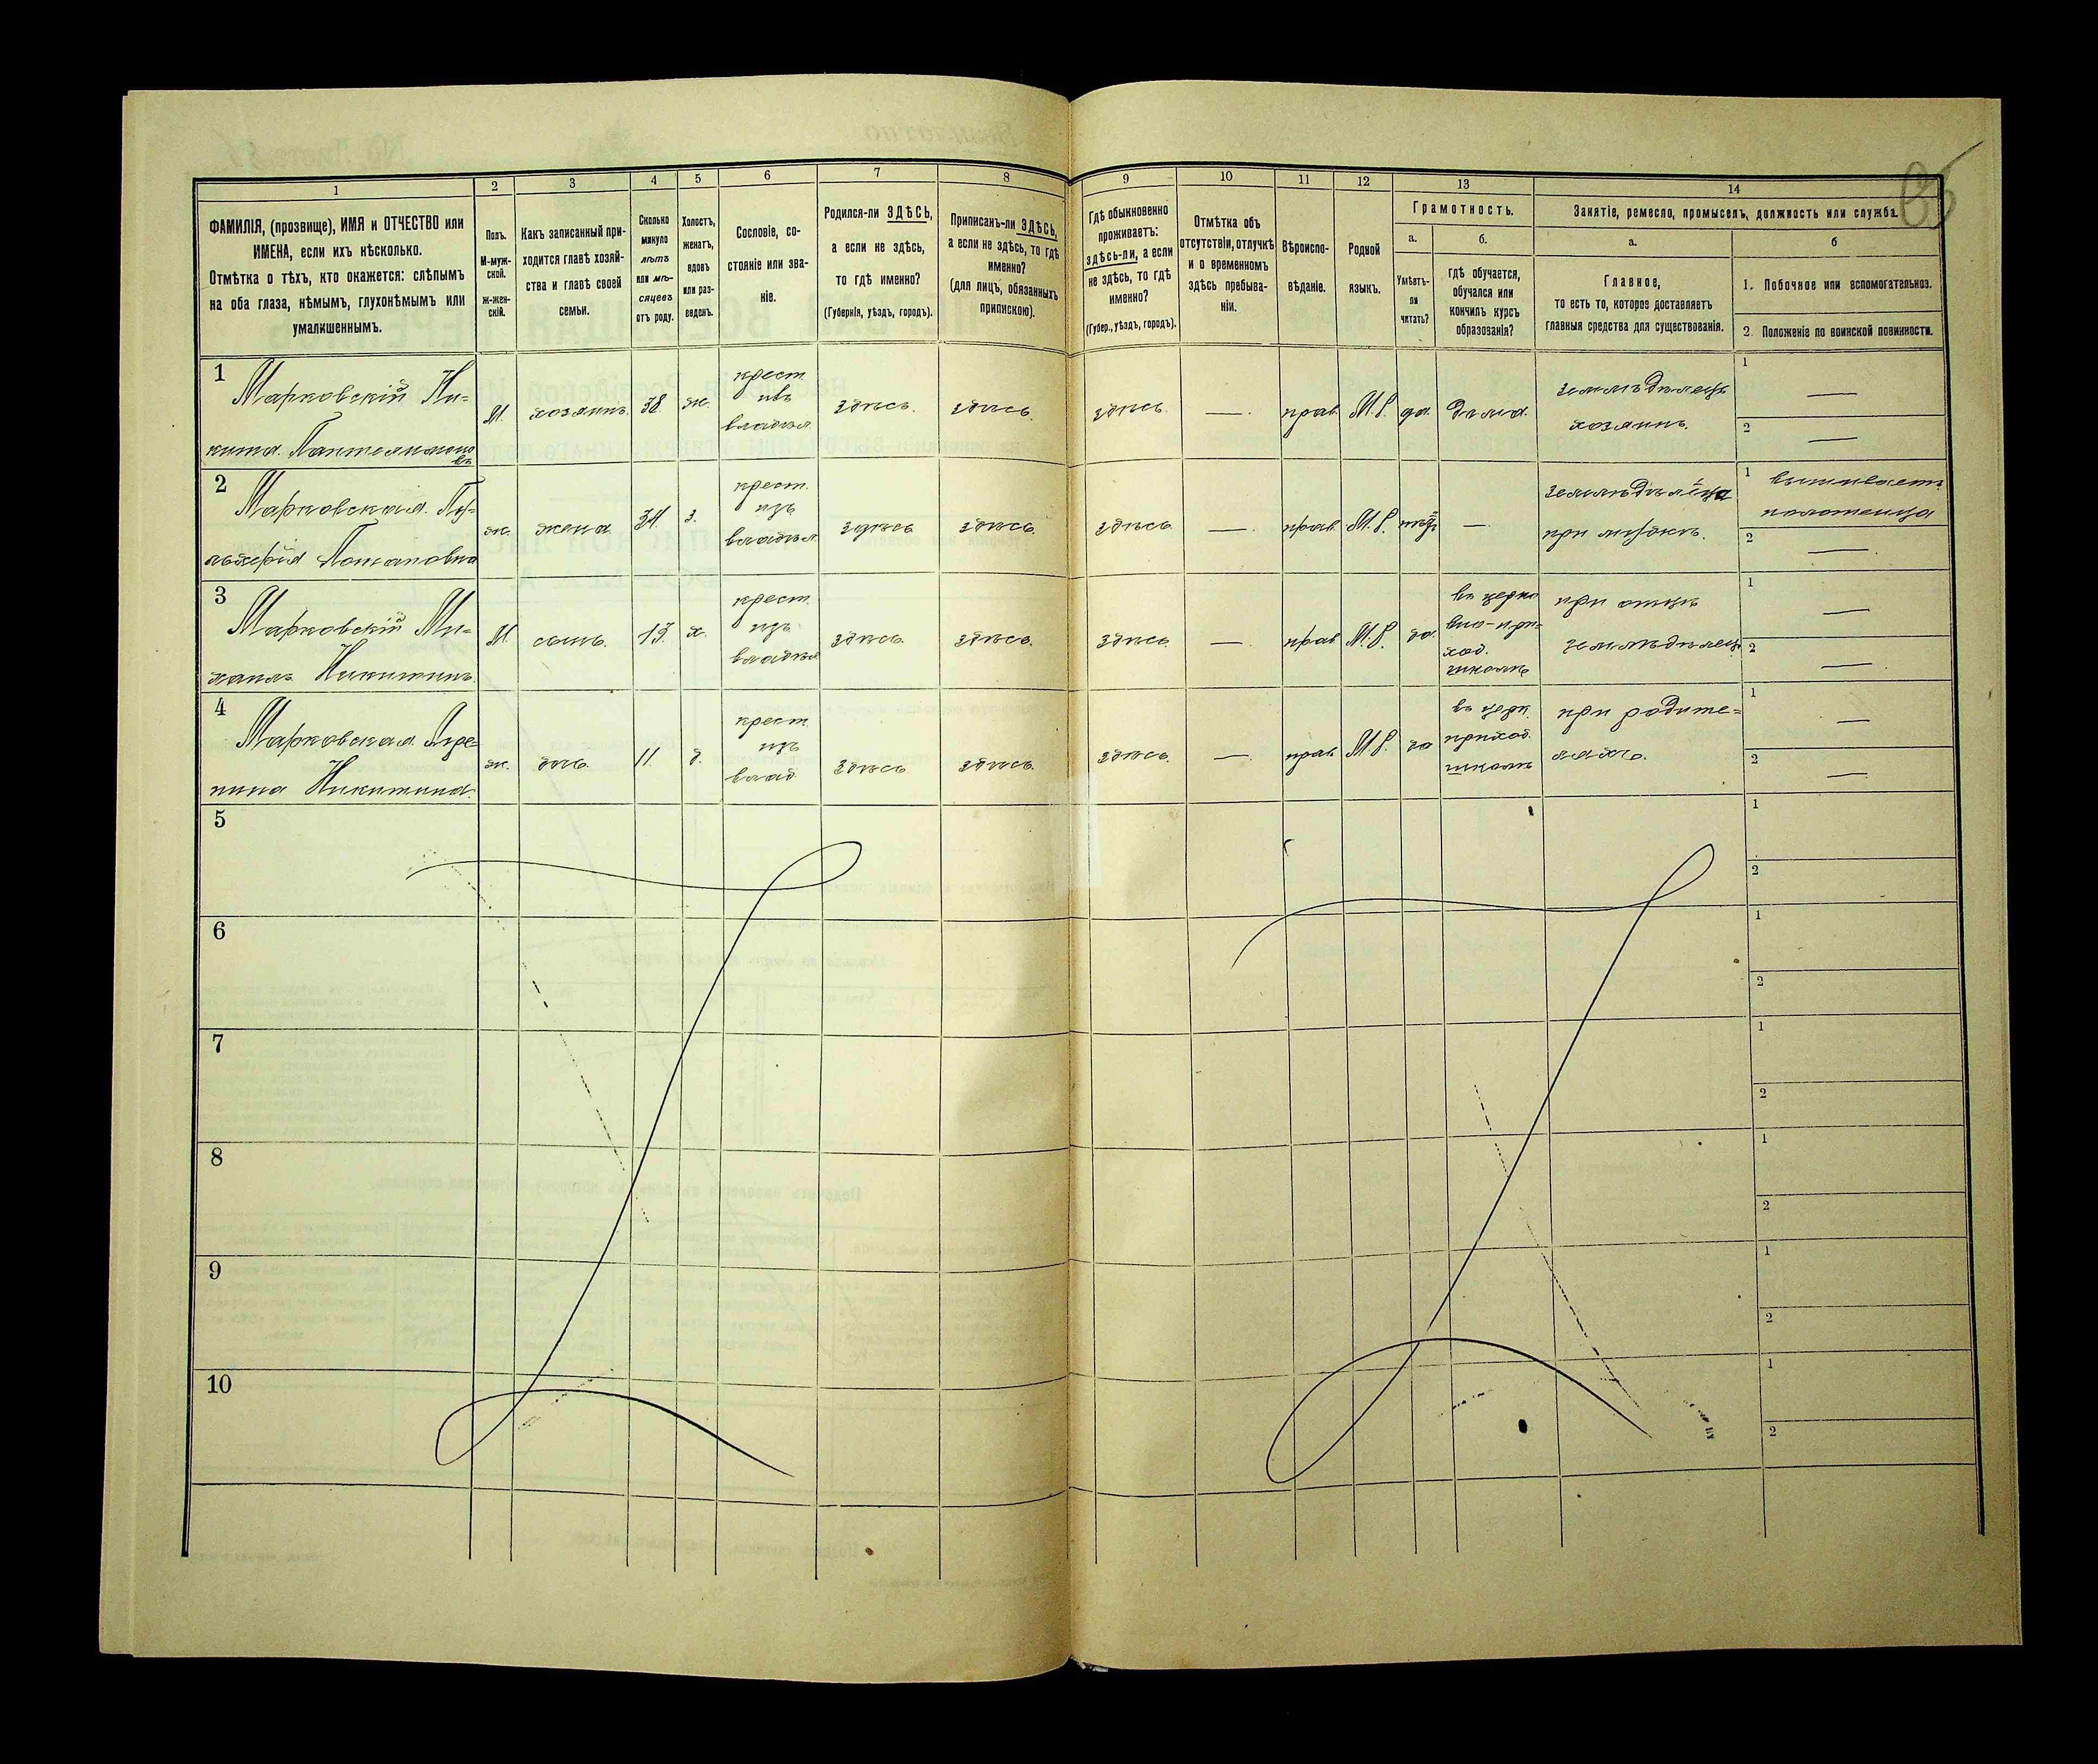 85
1 2 3 4 5 6 7 8 9 10 11 12 13 14
ФАМИЛІЯ, (прозвище), ИМЯ и ОТЧЕСТВО или
ИМЕНА, если ихъ нѣсколько.
Отмѣтка о тѣхъ, кто окажется: слѣпымъ
на оба глаза, нѣмымъ, глухонѣмымъ или
умалишеннымъ.
Полъ.
М-муж-
ской.
Ж-жен-
скій.
Какъ записанный при-
ходится главѣ хозяй-
ства и главѣ своей
семьи.
Сколько
минуло
лѣтъ
или мѣ-
сяцевъ
отъ роду.
Холостъ,
женатъ,
вдовъ
или раз-
веденъ.
Сословіе, со-
стояніе или зва-
ніе.
Родился-ли ЗДѢСЬ,
а если не здѣсь,
то гдѣ именно?
(Губернія, уѣздъ, городъ).
Приписанъ-ли ЗДѢСЬ,
а если не здѣсь, то гдѣ
именно?
(для лицъ, обязанныхъ
припискою).
Гдѣ обыкновенно
проживаетъ:
здѣсь-ли, а если
не здѣсь, то гдѣ
именно?
(Губер., уѣздъ, городъ).
Отмѣтка объ
отсутствіи, отлучкѣ
и о временномъ
здѣсь пребыва-
ніи.
Вѣроиспо-
вѣданіе.
Родной
языкъ.
Грамотность.
а.
Умѣетъ-
ли
читать?
б.
гдѣ обучается,
обучался или
кончилъ курсъ
образованія?
Занятіе, ремесло, промыселъ, должность или служба.
а.
Главное,
то есть то, которое доставляетъ
главныя средства для существованія.
б
1. Побочное или вспомогательноз.
2. Положеніе по воинской повинности.
1
Марковскій Ни-
кита Пантелимоно
въ
М.
хозяинъ
38
ж.
крест.
изъ
владѣл.
здѣсь.
здѣсь.
здѣсь.
—.
прав.
М.Р.
да
дома.
земледѣлецъ
хозяинъ.
1 —
2 —
2
Марковская Пу-
льхерія Потаповна
ж.
жена
34.
з.
крест.
изъ
владѣл.
здѣсь
здѣсь.
здѣсь
—.
прав
М.Р.
нѣтъ
—.
при мужѣ.
1 вышиваетъ
полотенца
2 —.
3
Марковскій Ми-
хаилъ Никитинъ.
М.
сынъ.
13.
х.
крест.
изъ
владѣл
здѣсь.
здѣсь.
здѣсь.
—.
прав
М.Р.
да
въ церко
вно-при-
ход.
школѣ
при отцѣ
земледѣлецъ
1 —
2 —.
4
Марковская Агре-
пина Никитина.
ж.
дочь.
11.
д.
крест.
изъ
влад.
здѣсь
здѣсь.
здѣсь.
—.
прав
М.Р.
да
въ церк.
приход.
школѣ
при родите=
ляхъ.
1 —
2 —
5 1
2
6 1
2
7 1
2
8 1
2
9 1
2
10 1
2